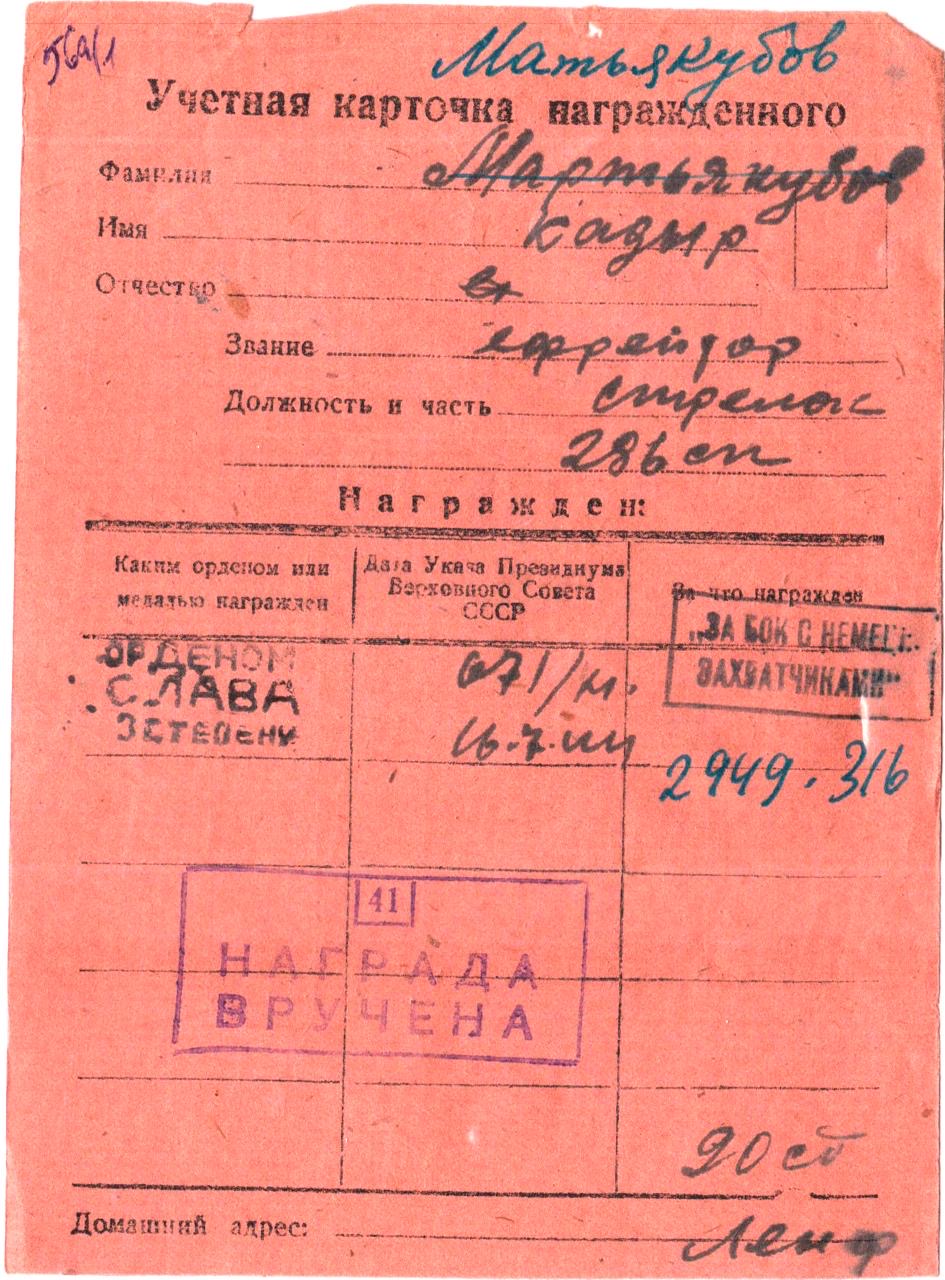 56а/1
Матьякубов
Учетная карточка награжденного
Фамилия Мартьякубов
Имя Кадыр
Отчество
Звание ефрейтор
Должность и часть стрелок
286 сп
Награжден:
Каким орденом или
медалью награжден
Дата Указа Президиума
Верховного Совета
СССР
За что награжден
ОРДЕНОМ
СЛАВА
3 СТЕПЕНИ
671/м.
16.7.
„ЗА БОИ С НЕМЕЦ.
ЗАХВАТЧИКАМИ"
2949.316
41
НАГРАДА
ВРУЧЕНА
Домашний адрес: Ленф